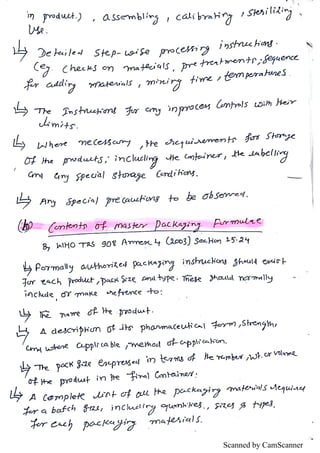 in product.) , assembling , calibrating , sterilizing
use.
↳ Detailed step-wise processing instructions.
(eg checks on materials, pretreatments, sequence
for adding materials, mixing time, temperatures.
↳ The Instructions for any inprocess Controls with their
limits.
↳ Where necessary , the requirements for storage
Of the products; including the container, the labelling
and any special storage Conditions.
↳ Any special precautions to be observed.
(b) Contents of master Packaging Formulae
By WHO TRS 908 Annex 4 (2003) Section 15.24
↳ Formally authorized packaging instructions should exist
for each product, pack size and type. These should normally
include, or make refrence to:
↳ The name of the product.
↳ A description of its pharmaceutical form, Strength,
and where applicable, method of application.
↳ The pack size expressed in terms of the number, wt. or volume
of the product in the final Container.
↳ A complete list of all the packaging materials required
for a batch size, including quantities., sizes & types.
for each packaging materials.
Scanned by CamScanner